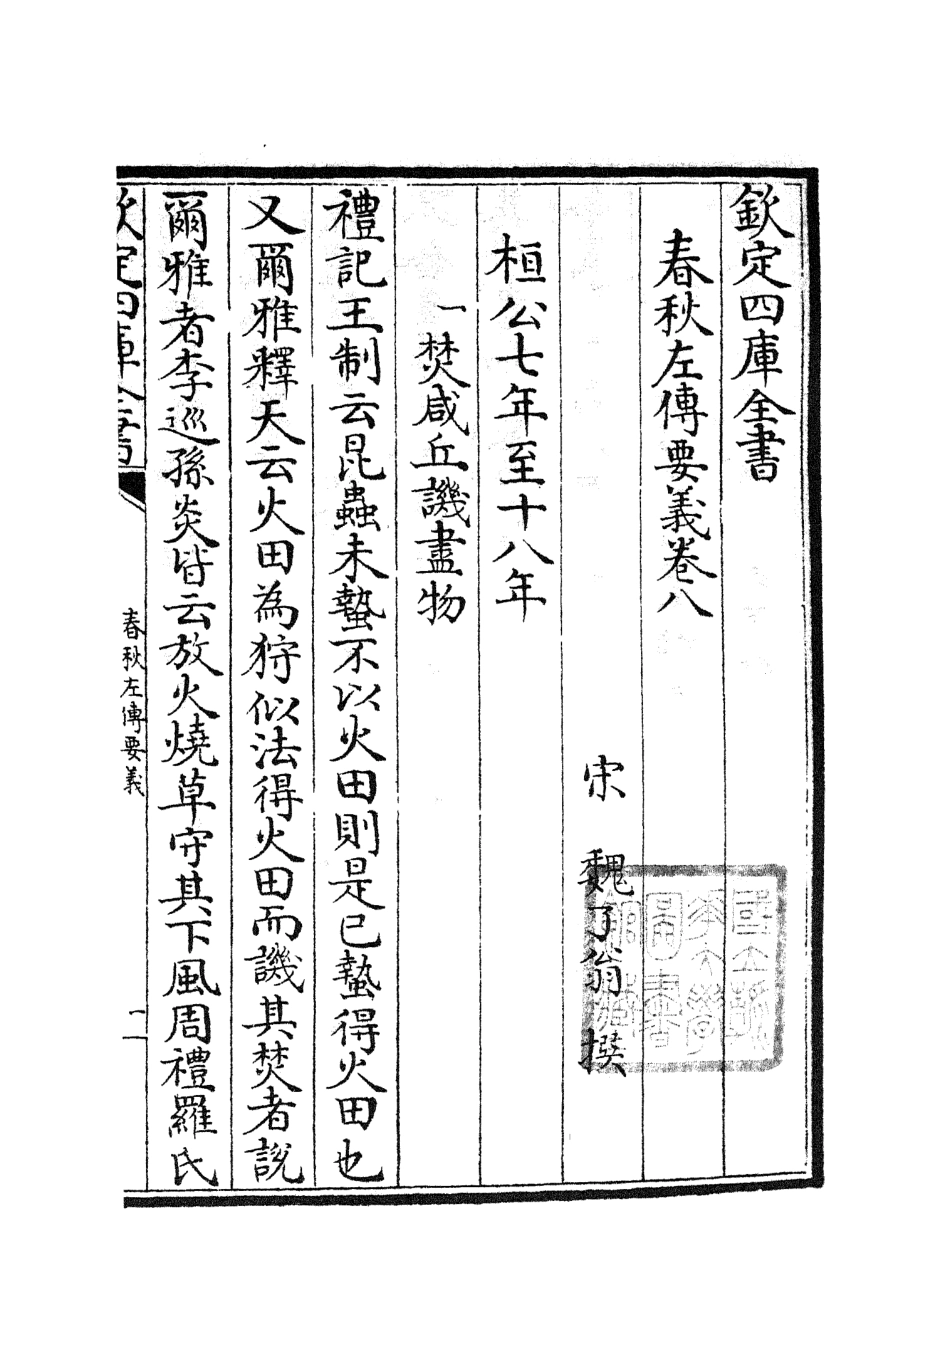 欽定四庫全書
春秋左傳要義卷八
宋 魏了翁 撰
桓公七年至十八年
一焚咸丘譏盡物
禮記王制云昆蟲未蟄不以火田則是已蟄得火田也
又爾雅釋天云火田為狩似法得火田而譏其焚者說
爾雅者李巡孫炎皆云放火燒草守其下風周禮羅氏
欽定四庫全書
春秋左傳要義
一